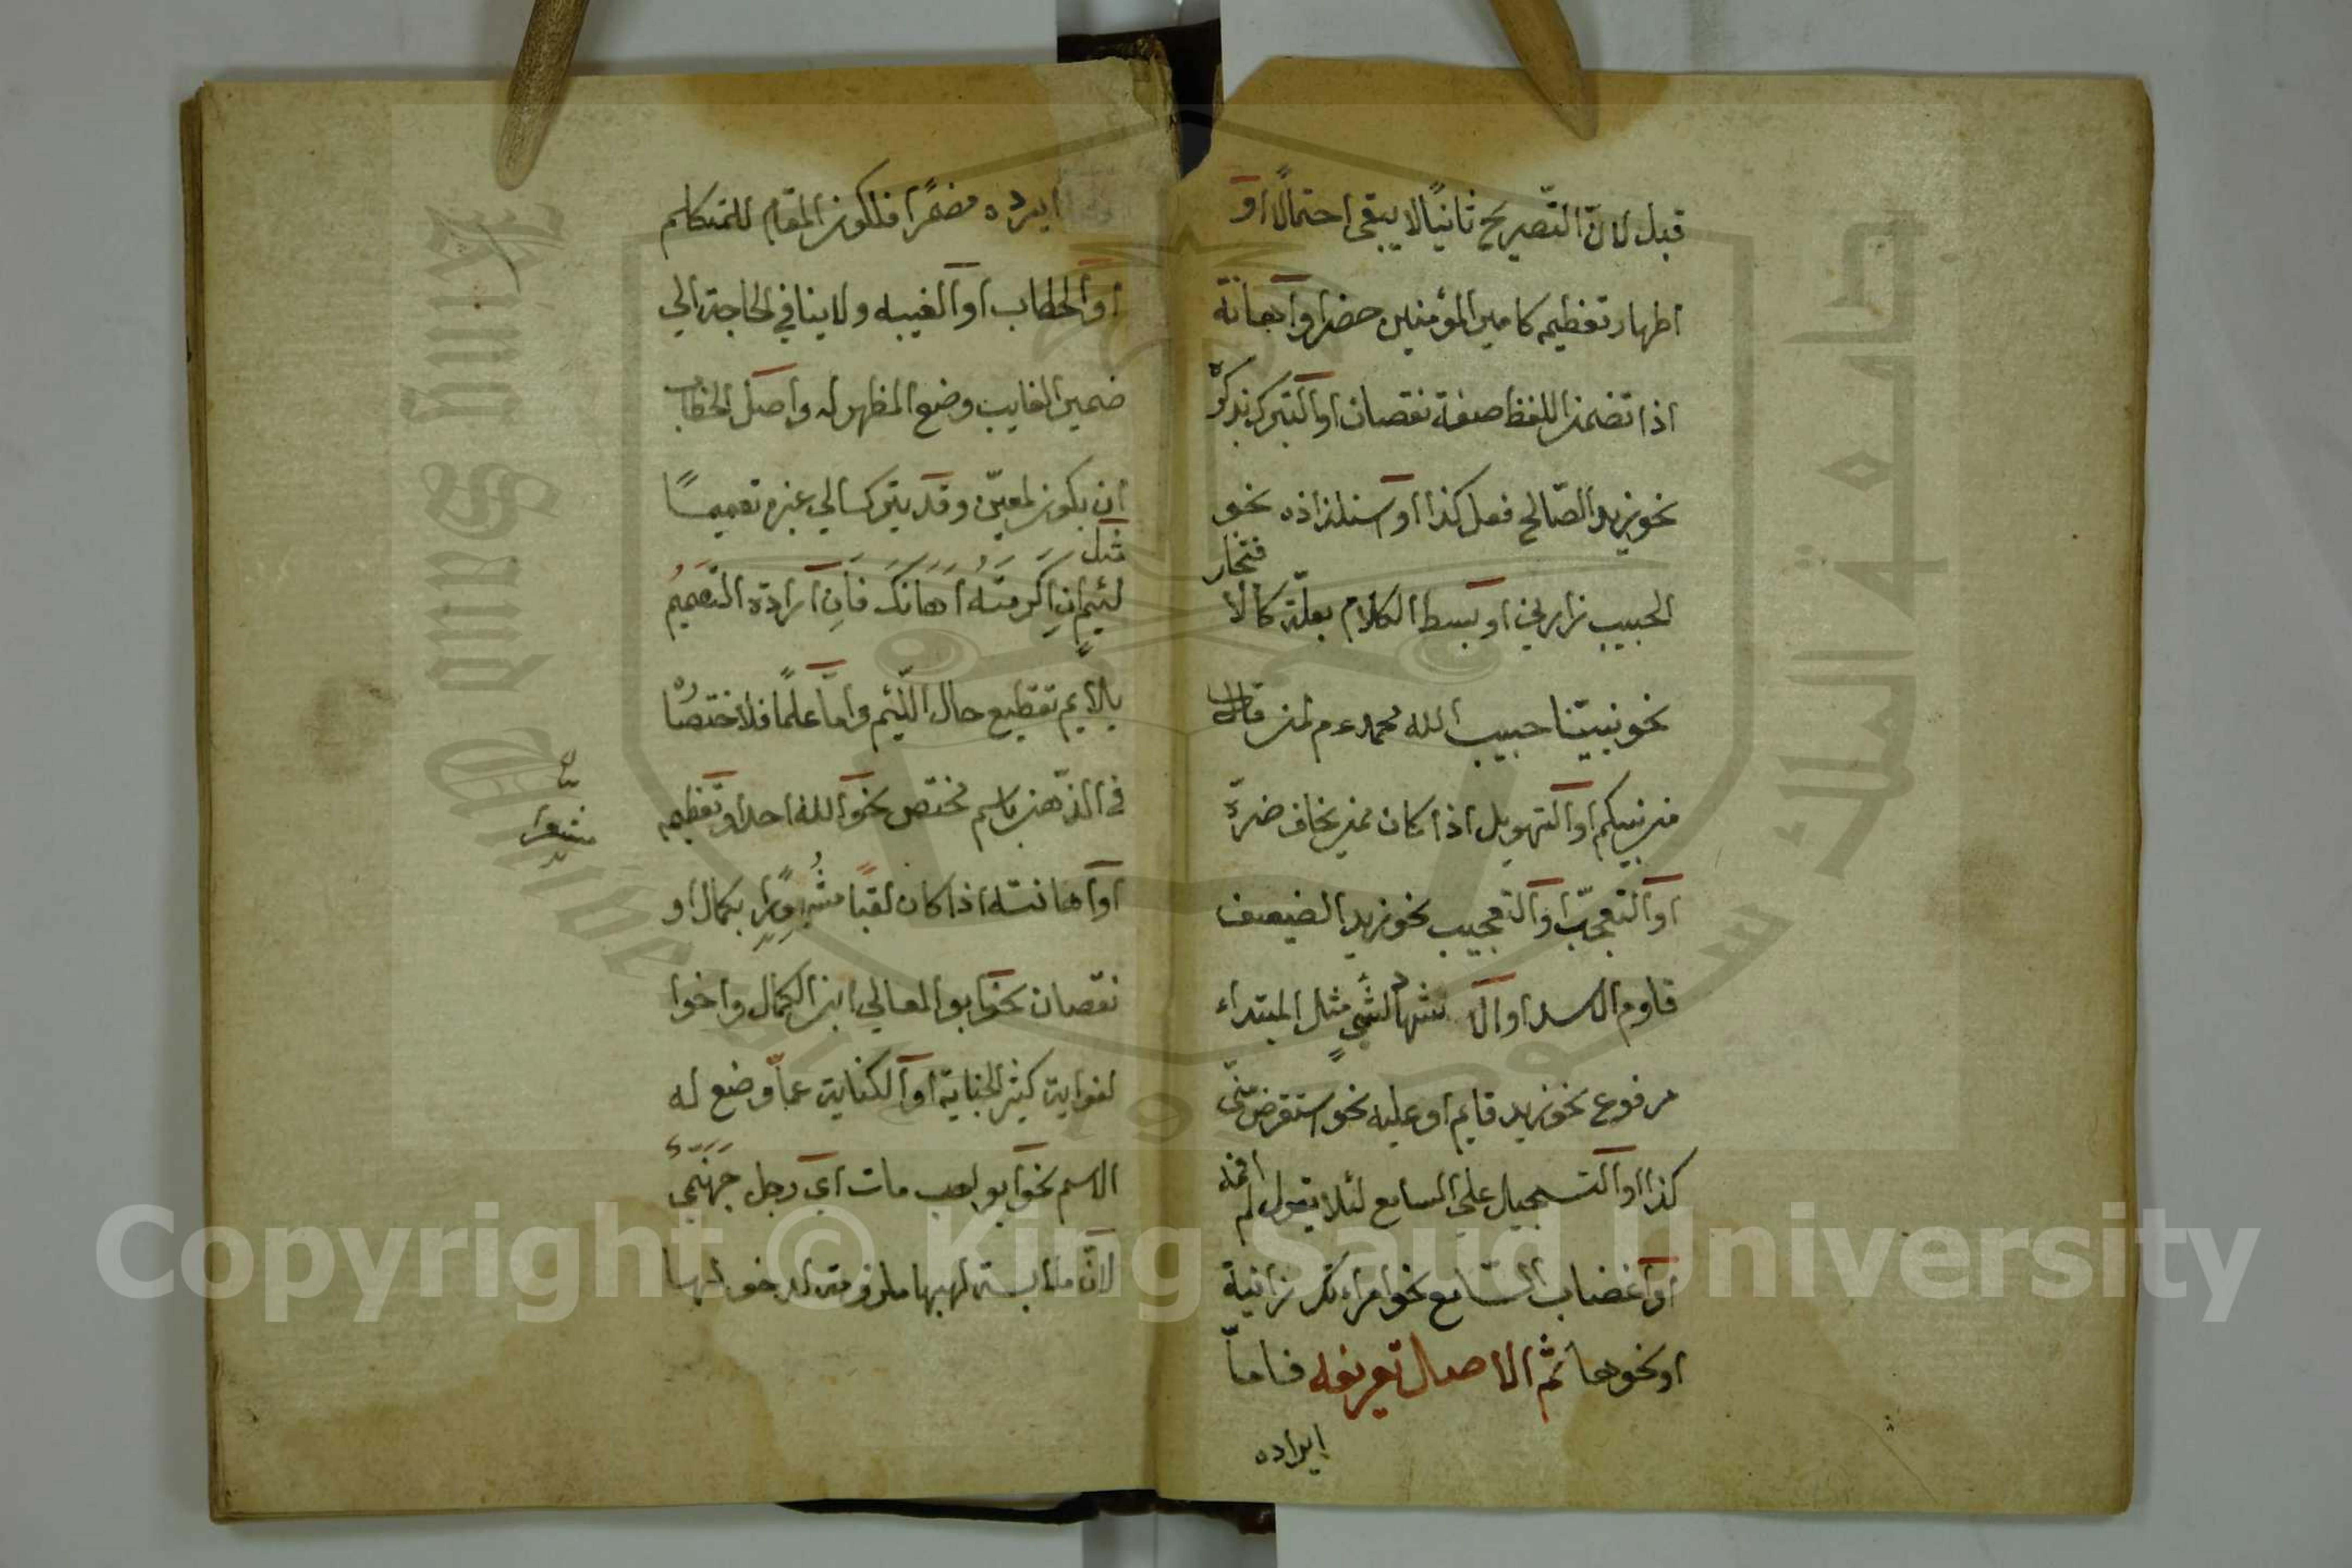 قبل لانّ التّصريح ثانيًا لا يبقى احتمالًا او
اظهار تعظيمه كامير المؤمنين حضر او اهانته
اذا تضمن اللفظ صفة نقصان او التبرك بذكره
نحو زيد الصّالح فعل كذا او استلذاذه نحو
الحبيب زارني او بسط الكلام بعلّة كالا
فتخار
نحو نبيّنا حبيب الله محمد عم لمن قال
من نبيكم او التهويل اذا كان ممن يخاف ضرّه
او التعجّب او التعجيب نحو زيد الضعيف
قاوم الاسد او الا ستشهاد لشيٍ مثل المبتداء
مرفوع نحو زيد قايم او عليه نحو استقرض منّى
كذا او التسجيل على السامع لئلا يقول لم افهمه
او اغضاب السّامع نحو امراءتك زانية
او نحوها ثم الاصل تعريفه فامّا
ايراده
ايرده مضمرًا فلكون المقام للمتكلم
او الخطاب او الغيبه ولا ينافي الحاجة الي
ضمير الغايب وضع المظهر له واصل الخطاب
ان يكون لمعيّن وقد يترك الي غيره تعميمًا
مثل
لئيم ان اكرمته اهانك فان ارادة التعميم
يلايم تفظيع حال اللّئيم وامّا علمًا فلاختصا
ره
في الذّهن باسم مختص نحو الله احد او تعظيمه
او اهانته اذا كان لقبًا مشهورًا بكمال او
مشعرا
نقصان نحو ابو المعالي ابن الكمال واخوا
لغواية كثير الجناية او الكناية عمّا وضع له
الاسم نحو ابو لهب مات اي رجل جهنّمي
لانّ ملابسته لهبها ملزومة لدخولها
Copyright © King Saud University
King Saud University
جامعة الملك سعود